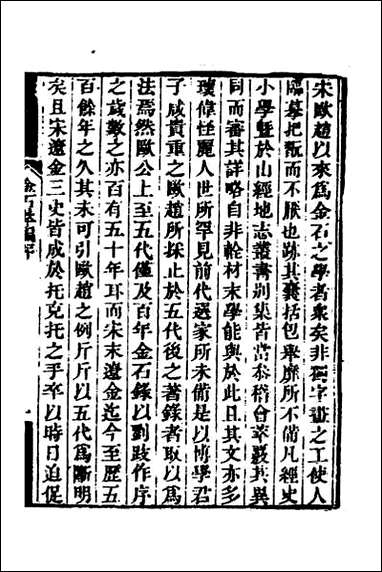 宋歐趙以來為金石之學者衆矣非獨字畫之工使人
臨摹把翫而不厭也跡其囊括包舉靡所不備凡經史
小學暨於山經地志叢書別集皆當參稽會萃覈其異
同而審其詳略自非輇材末學能與於此且其文亦多
瓌偉怪麗人世所罕見前代選家所未備是以博學君
子咸貴重之歐趙所採止於五代後之著錄者取以為
法焉然歐公上至五代僅及百年金石錄以劉跂作序
之歲數之亦百有五十年耳而宋末遼金迄今至歷五
百餘年之久其未可引歐趙之例斤斤以五代為斷明
矣且宋遼金三史皆成於托克托之手卒以時日迫促
金石萃編序
一